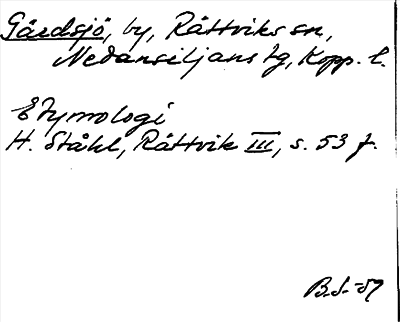 Gärdsjö, by, Rättviks sn,
Nedansiljans tg, Kopp. l.
Etymologi
H. Ståhl, Rättvik III, s. 53 f.
B.S. -59